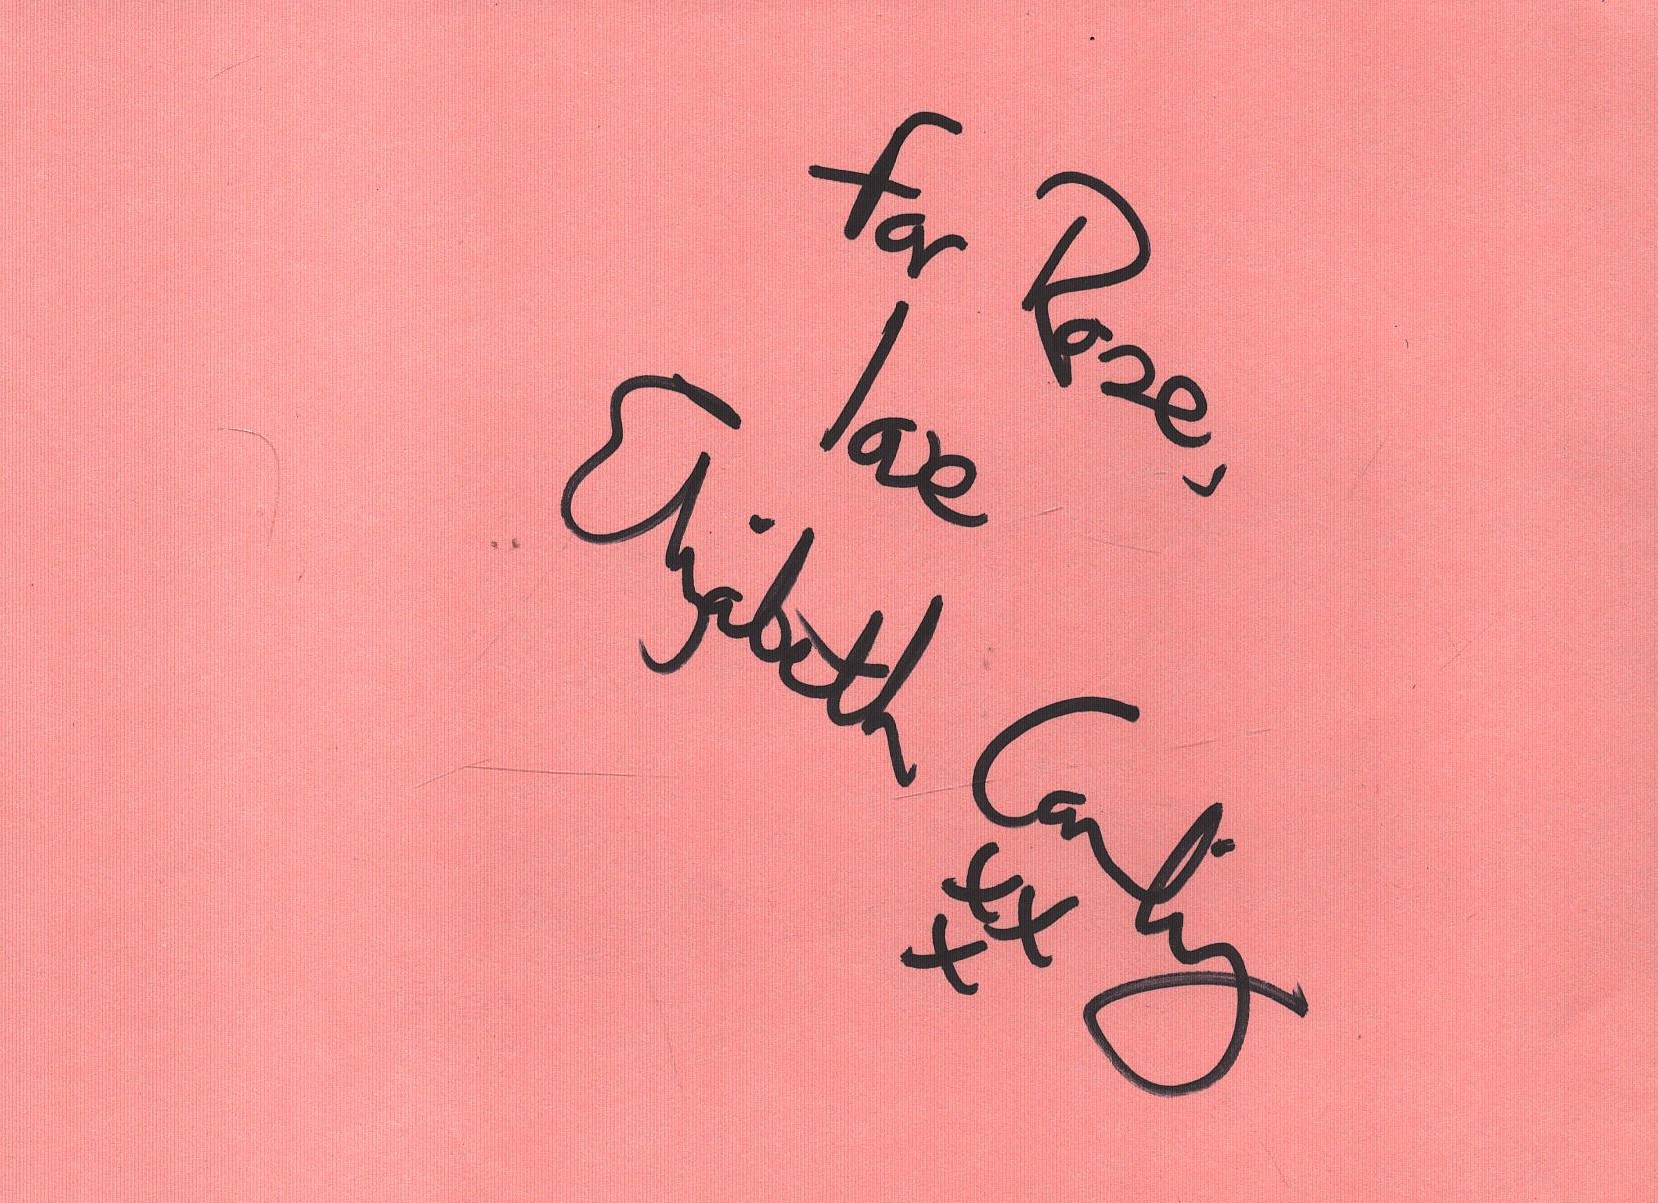 For Rose,
love
Elizabeth Carling
xx
x